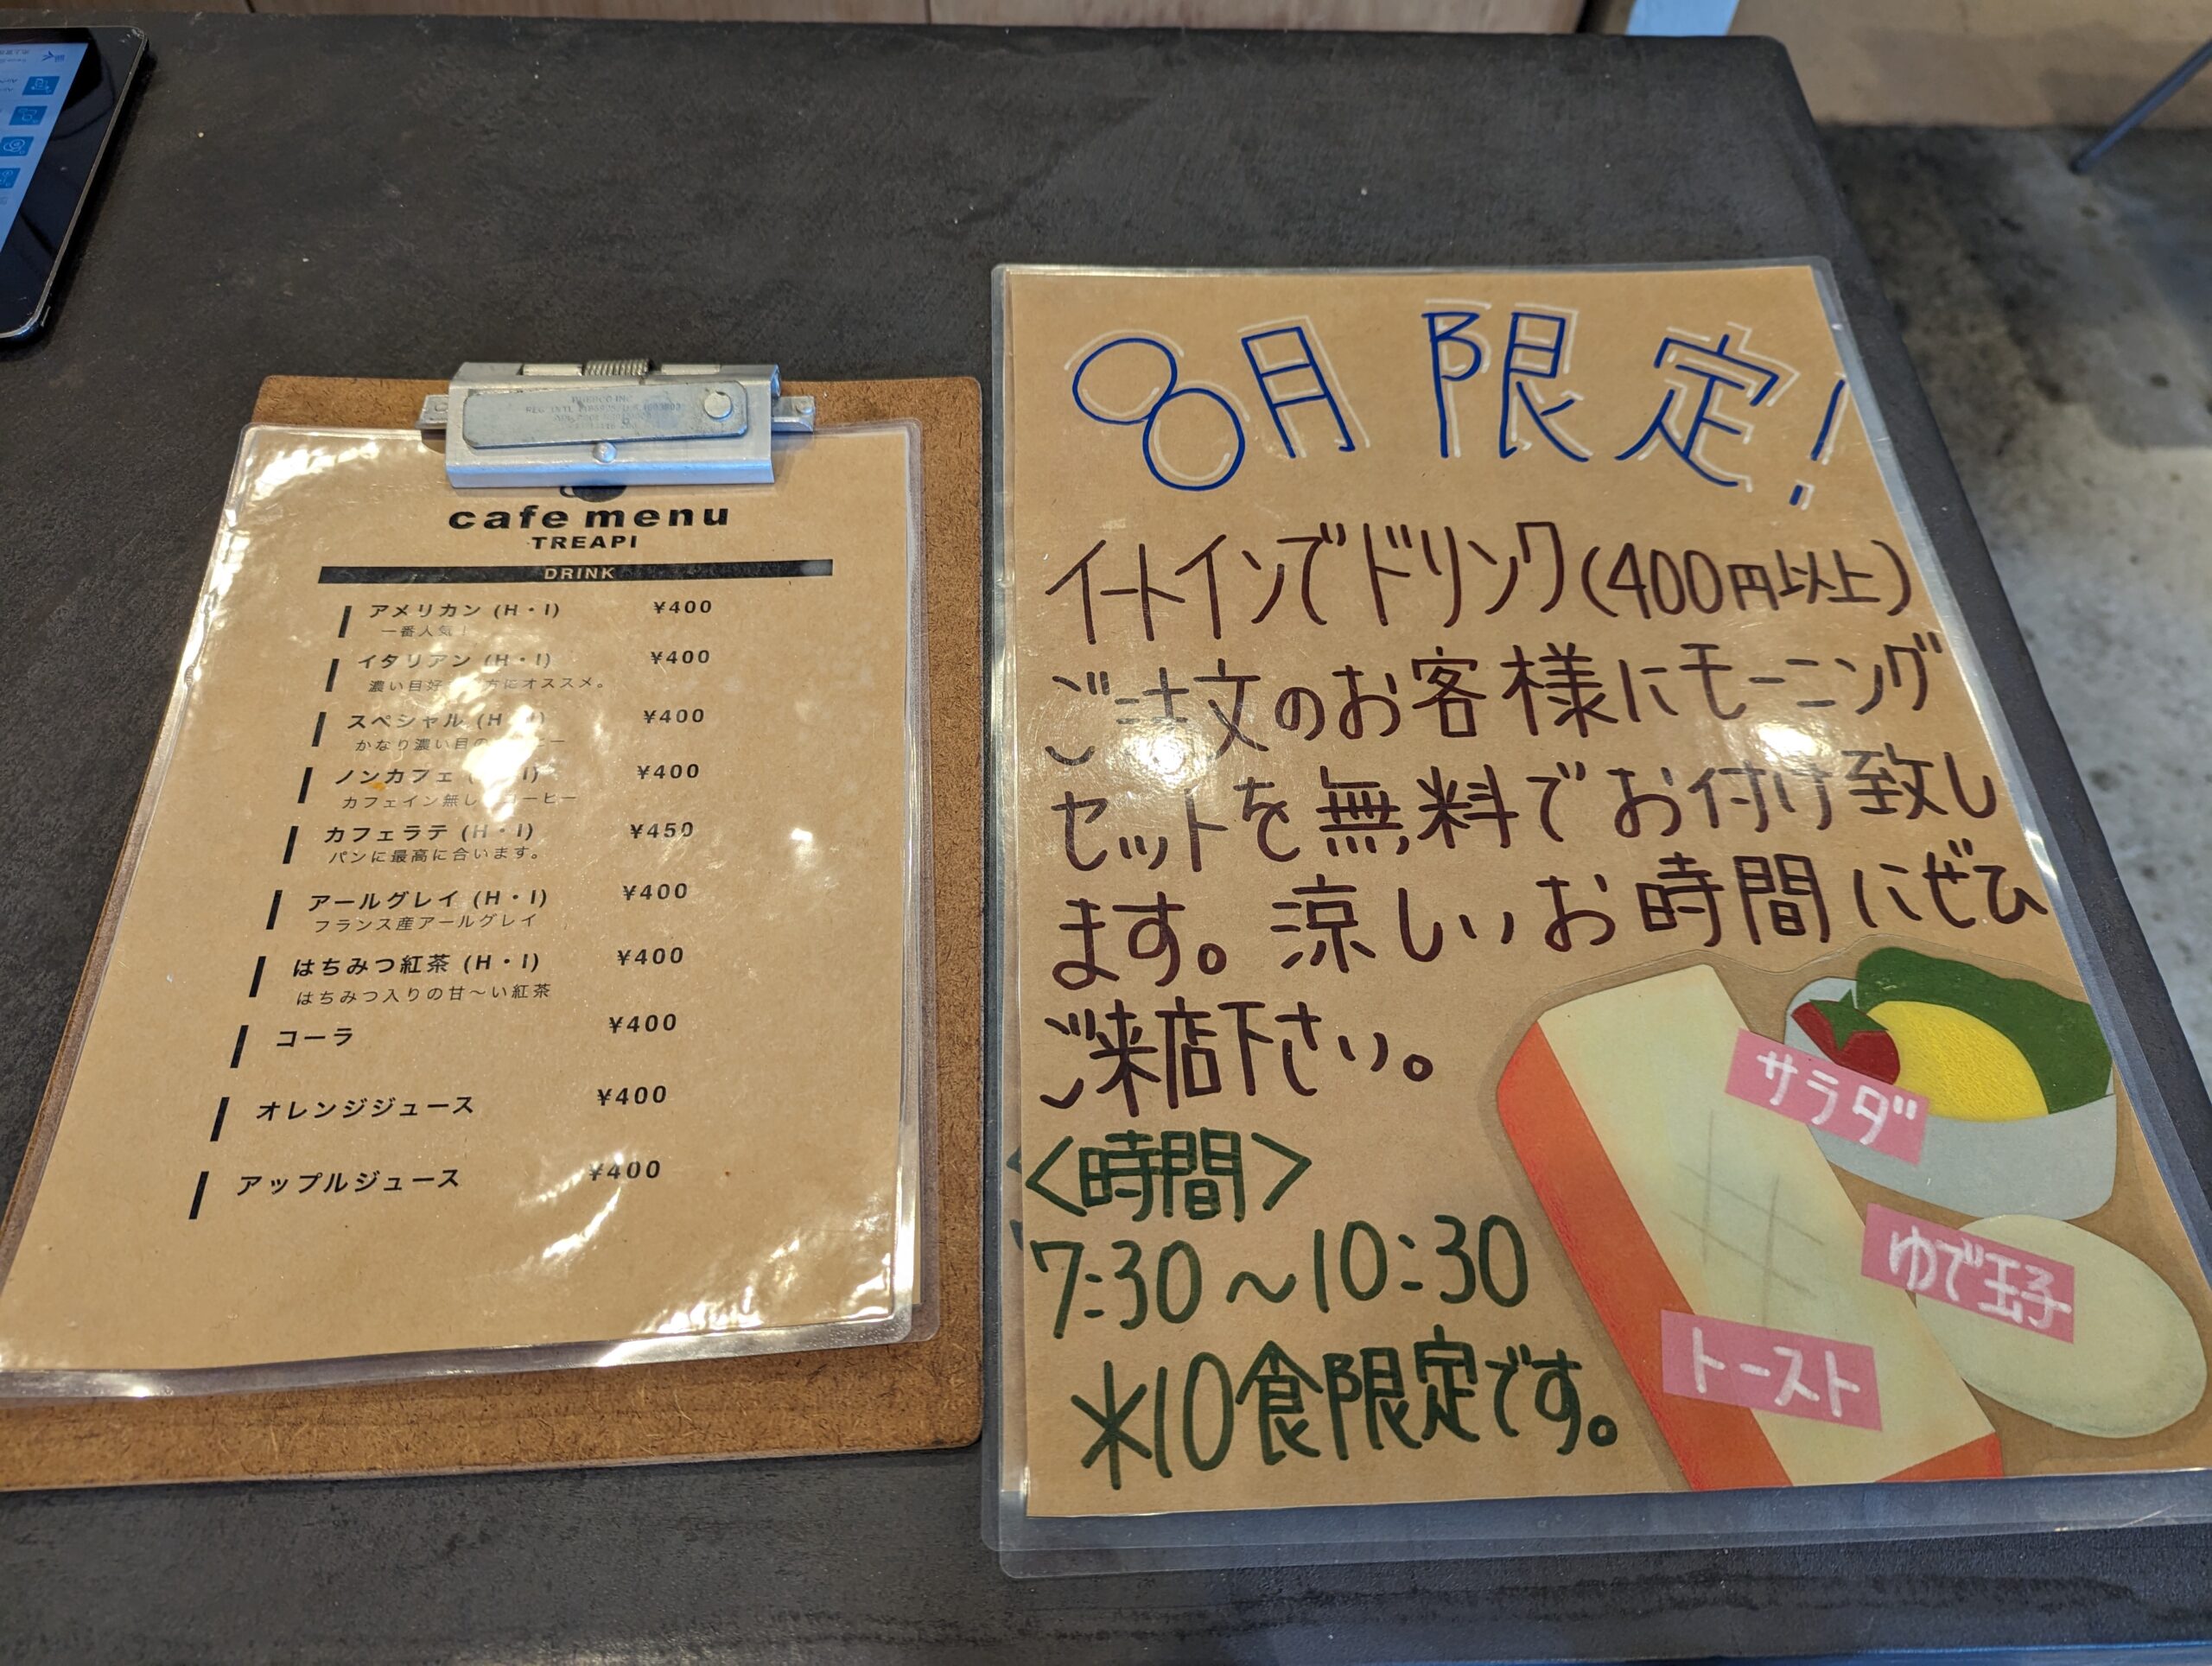 cafe menu
TREAPI
DRINK
アメリカン (H・I) ¥400
一番人気!
イタリアン (H・I) ¥400
濃い目好 方にオススメ。
スペシャル (H・I) ¥400
かなり濃い目の
ノンカフェ ( I) ¥400
カフェイン無し コーヒー
カフェラテ (H・I) ¥450
パンに最高に合います。
アールグレイ (H・I) ¥400
フランス産アールグレイ
はちみつ紅茶 (H・I) ¥400
はちみつ入りの甘〜い紅茶
コーラ ¥400
オレンジジュース ¥400
アップルジュース ¥400
8月限定!
イートインでドリンク(400円以上)
ご注文のお客様にモーニング
セットを無料でお付け致し
ます。涼しいお時間にぜひ
ご来店下さい。
<時間>
7:30〜10:30
※10食限定です。
サラダ
ゆで玉子
トースト